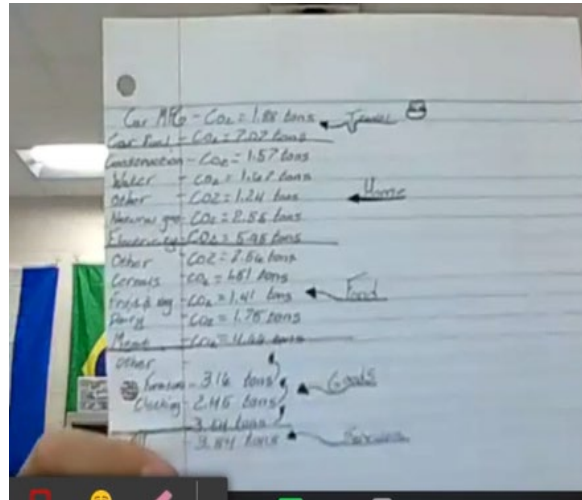 Car MFG - CO2 = 1.88 tons Travel
Car Fuel - CO2 = 7.07 tons
Construction - CO2 = 1.57 tons
Water - CO2 = tons
Other - CO2 = 1.24 tons Home
Natural gas - CO2 = 2.55 tons
Electricity - CO2 = 5.95 tons
Other - CO2 = tons
Cereals - CO2 = tons
Fruit & veg - CO2 = 1.41 tons Food
Dairy - CO2 = 1.75 tons
Meat - CO2 = tons
Other
Furniture - 3.16 tons Goods
Clothing - 2.45 tons
tons
tons Services